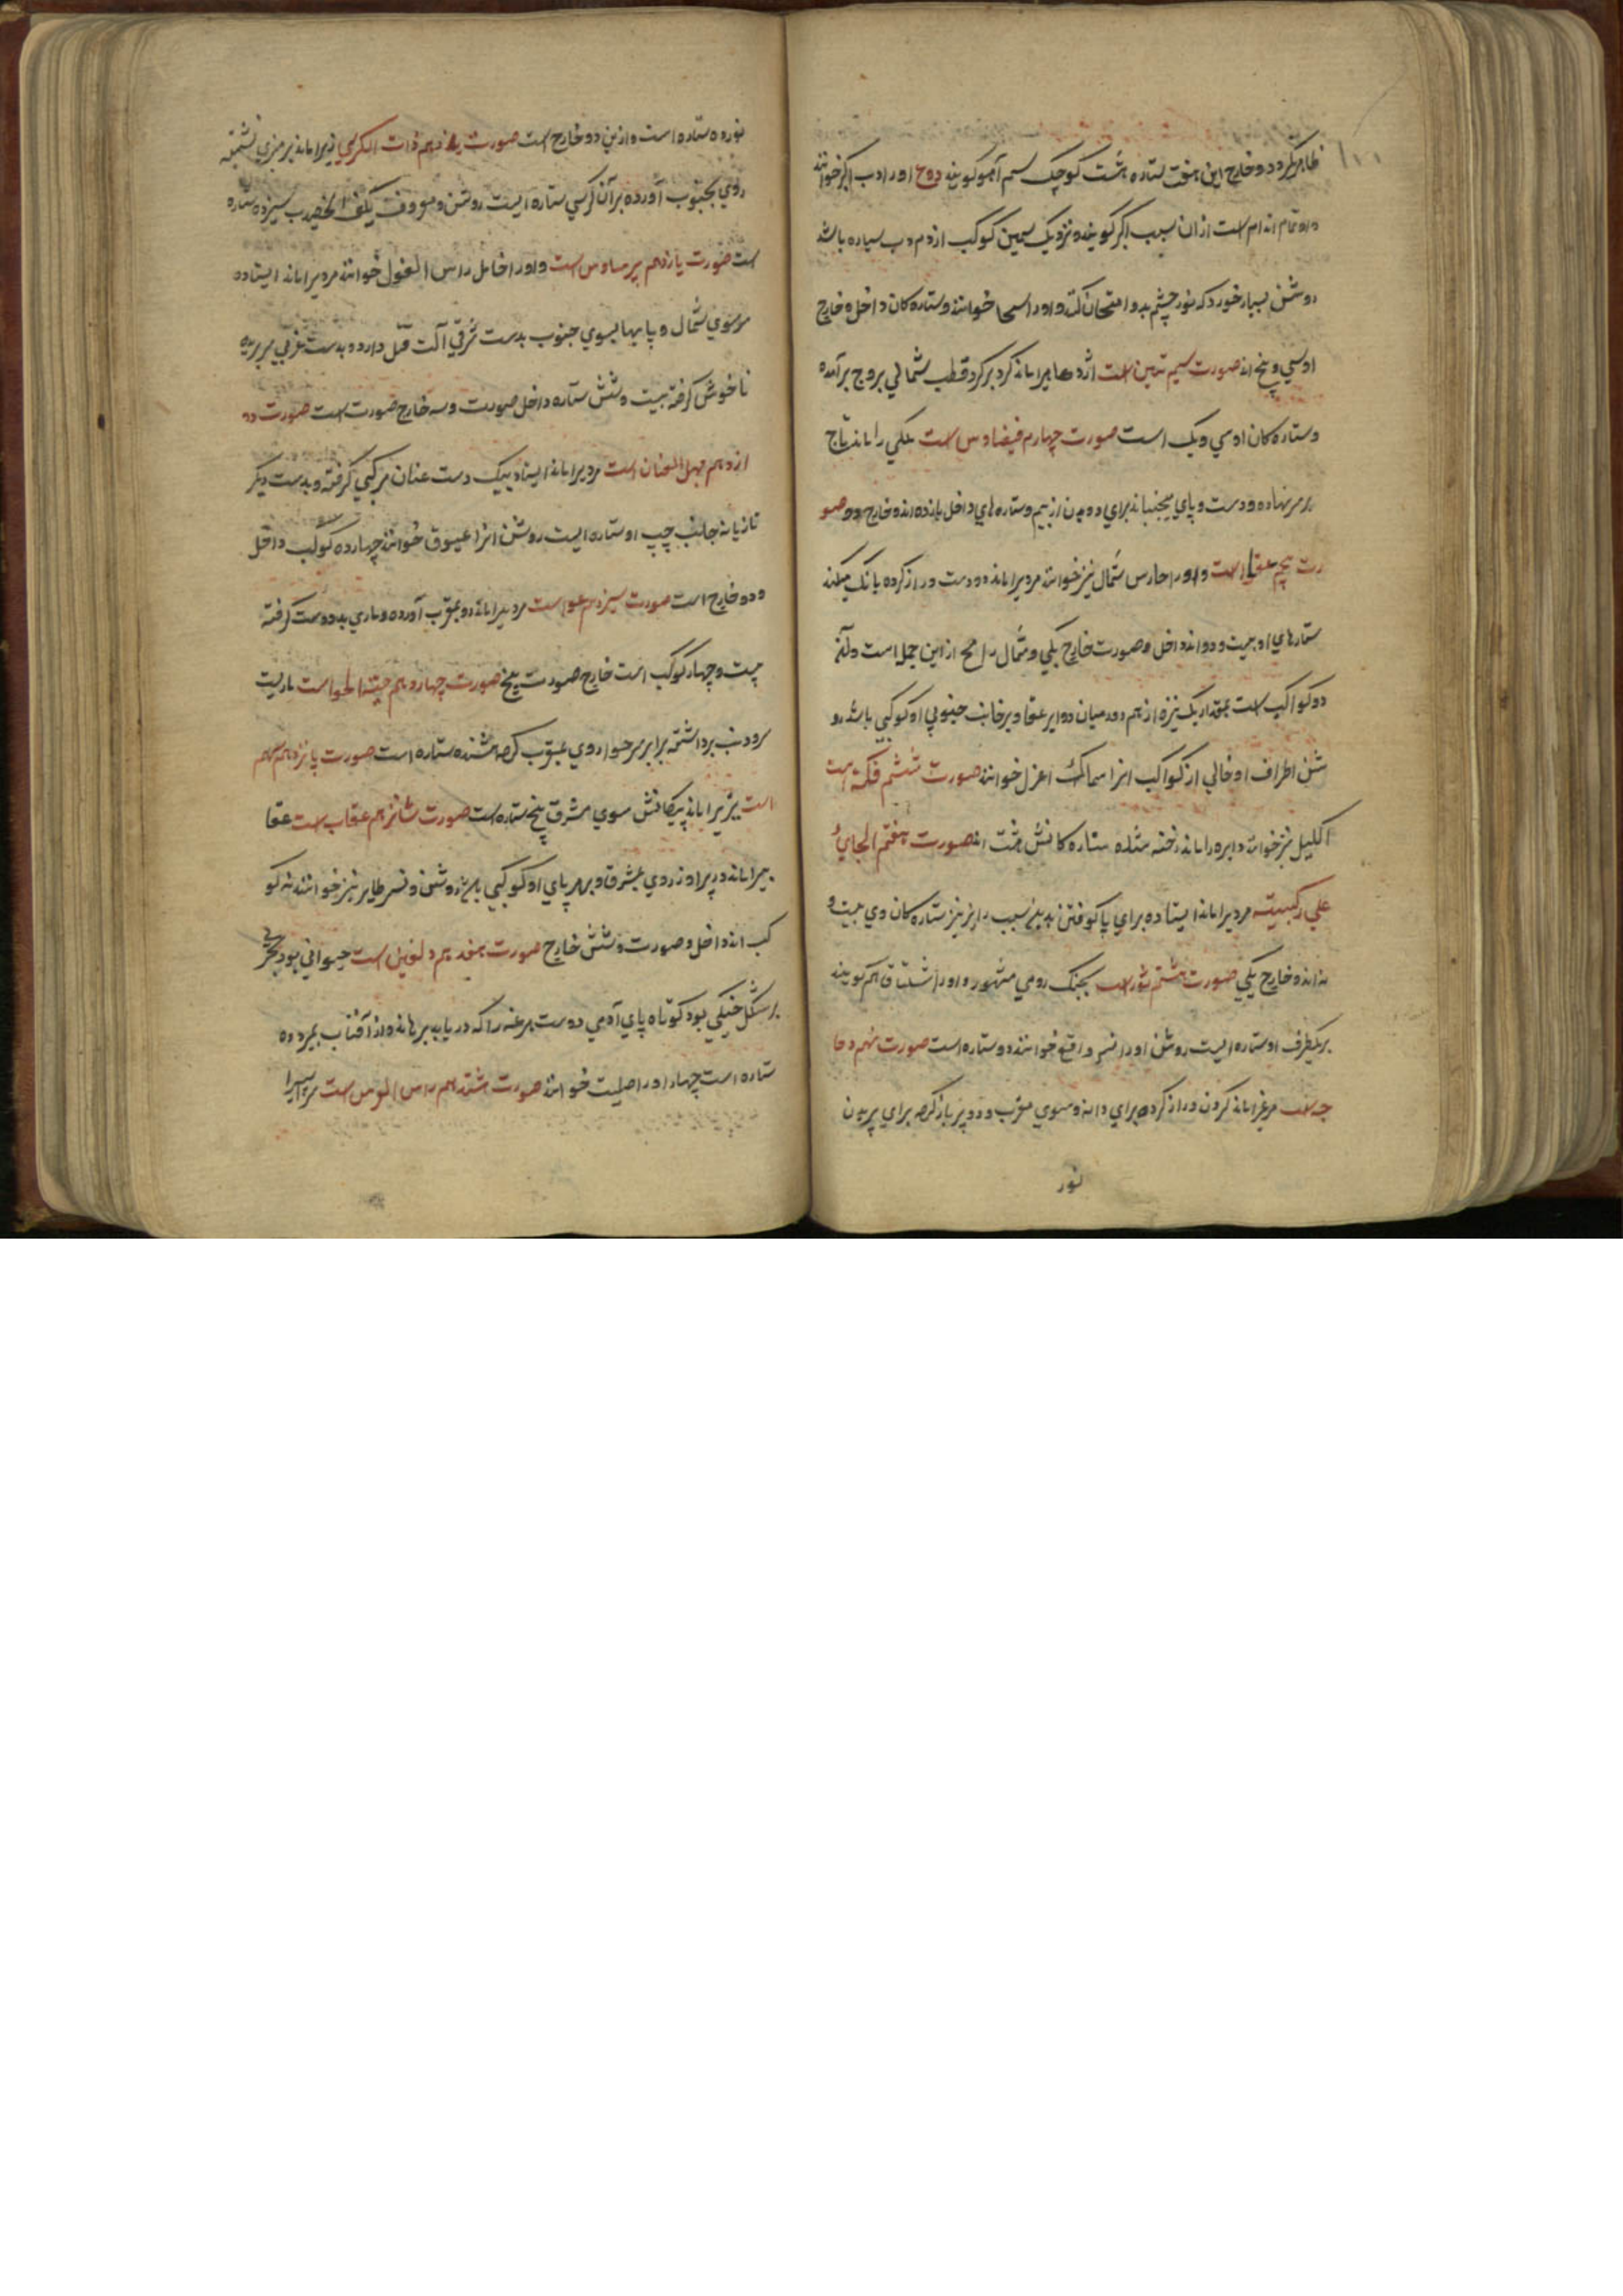 ظاهر گردد و خارج این هفت ستاره هشت کوچک سم آهو کویند دوم او را دب اکبر خوانند
و او تمام اندام است از ان سبب اکبر کویند و نزدیک سیمین کوکب از دم دب سیاره باشد
روشن بسیار خورد که نور چشم بدو امتحان کنند و او را سها خوانند و ستاره کان داخل و خارج
او سی و پنج اند صورت سیم تنین است اژدها یرا ماند کرد بر کرد قطب شمالی بروج برآمده
و ستاره کان او سی و یک است صورت چهارم قیضاوس است ملکی را ماند تاج
بر سر نهاده و دست و پای میجنباند برای دویدن از بیم و ستاره های داخل یازده اند و خارج دو صو
رت پنجم عقا است و او را حارس شمال نیز خوانند مردیرا ماند دو دست دراز کرده بانک میکند
ستارهای او بیست و دو اند داخل و صورت خارج یکی و شمال رامح از این جمله است و آن
دو کواکب است بمقدار یک نیزه از هم دور میان دو ایر عقا و بر جانب جنوبی او کوکبی باشد رو
شن اطراف او خالی از کواکب انرا سماک اعزل خوانند صورت ششم فکه است
اکلیل نیز خوانند دایره را ماند رخنه شده ستاره کانش هشت اند صورت هفتم الجاثی
علی رکبتیه مردیرا ماند ایستاده برای پا کوفتن بدین سبب راقز نیز ستاره کان وی بیست و
نه اند و خارج یکی صورت هشتم شور است بجنک رومی مشهور و او را شلیاق هم کویند
بر یکطرف او ستاره ایست روشن او را نسر واقع خوانند ده ستاره است صورت نهم دجا
جه است مرغیرا ماند کردن دراز کرده برای دانه و سوی مغرب و دو پر باز کرده برای پریدن
نور
نوزده ستاره است و ازین دو خارج است صورت دهم ذات الکرسی زنیرا ماند بر منبری نشسته
روی بجنوب آورده بر آن کرسی ستاره ایست روشن و معروف بکف الخضیب سیزده ستاره
است صورت یازدهم برساوس است و او را حامل راس الغول خوانند مردیرا ماند ایستاده
سر سوی شمال و پایها بسوی جنوب بدست شرقی آلت قتل دارد و بدست غربی سر بریده
ناخوش کرفته بیست و شش ستاره داخل صورت و سه خارج صورت است صورت دو
ازدهم ممسک العنان است مردیرا ماند ایستاده بیک دست عنان مرکبی کرفته و بدست دیکر
تازیانه جانب چپ او ستاره ایست روشن انرا عیوق خوانند چهارده کوکب داخل
و دو خارج است صورت سیزدهم حوا است مردیرا ماند رو بمغرب آورده و ماری بدو دست کرفته
بیست و چهار کوکب است خارج صورت پنج صورت چهاردهم حیة الحوا است ماریست
سر و دنب برداشته برابر سر حوا روی بمغرب کرده هشده ستاره است صورت پانزدهم سهم
است تیریرا ماند پیکانش سوی مشرق پنج ستاره است صورت شانزدهم عقاب است عقا
بیرا ماند دو پر او روی بمشرق و بر هر پای او کوکبی باشد روشن و نسر طایر نیز خوانند نه کو
کب اند داخل و صورت و شش خارج صورت هفدهم دلفین است حیوانی بود بحری
بر شکل خیکی بود کوتاه پای آدمی دوست هر غرقه را که دریابد برهاند و از آفتاب بمیرد ده
ستاره است چهار او را صلیب خوانند صورت هشتدهم راس الفرس است سر اسپیرا